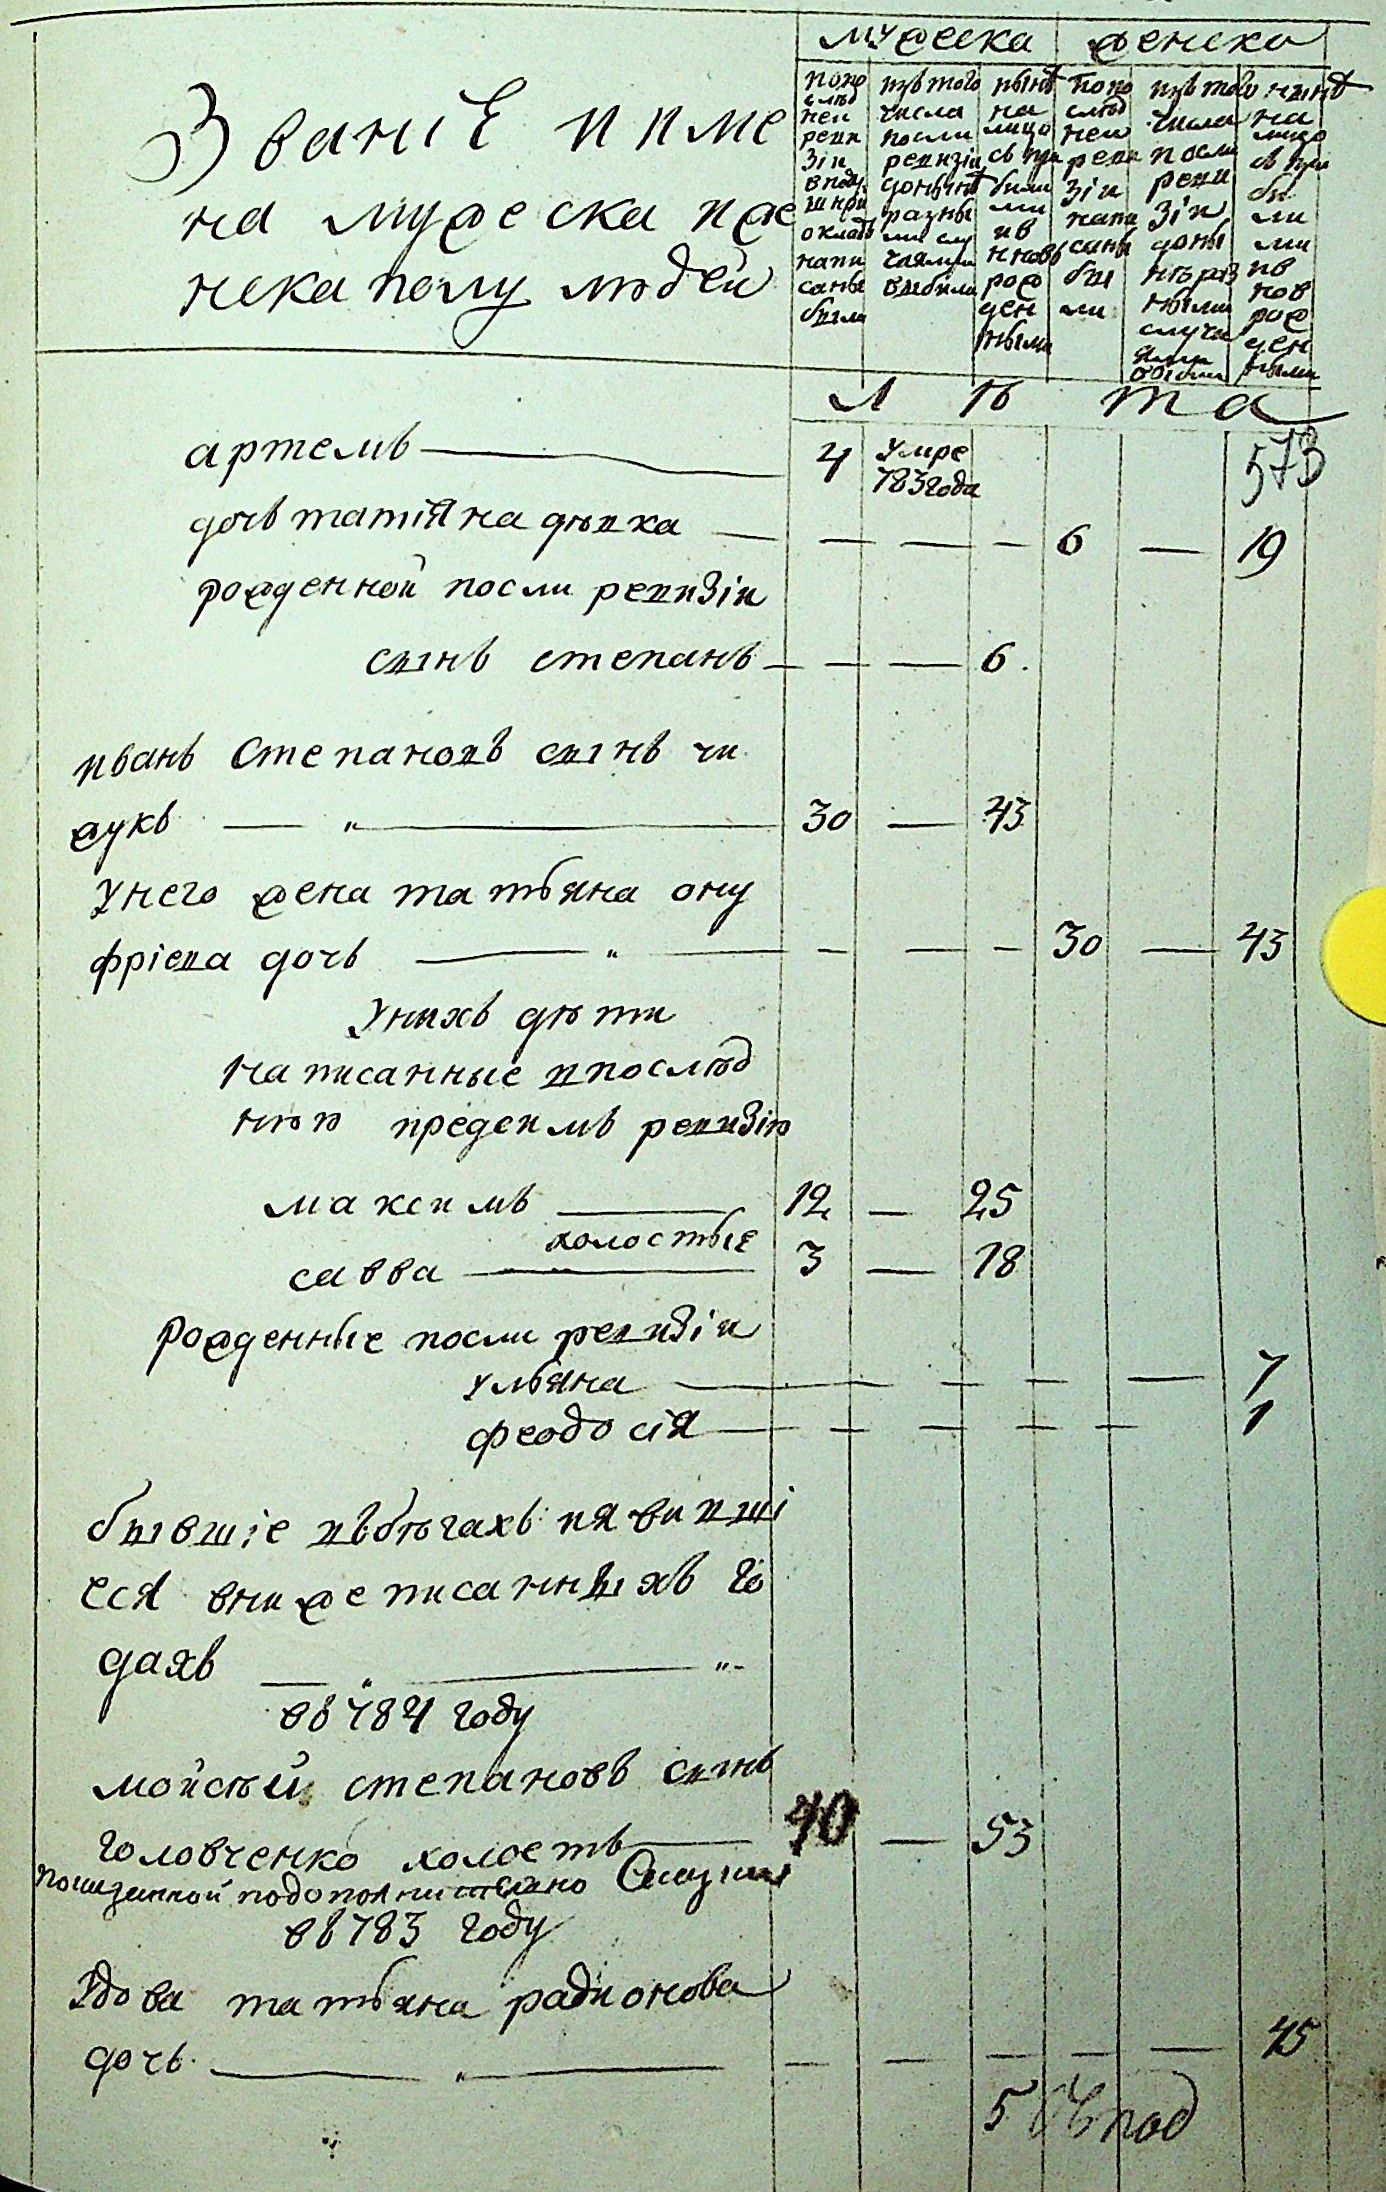 мужеска женска
Званіе и име
на мужеска и же
нска полу людей
попо
слѣд
ней
реви
зіи
вподу
шной
окладъ
напи
саны
были
изъ того
числа
посли
ревизіи
донынѣ
разны
ми слу
чаями
выбыли
нынѣ
на
лицо
съ при
были
ми
ив
нновь
рож
ден
ными
попо
слѣд
ней
реви
зіи
напи
саны
бы
ли
изъ того
числа
посли
реви
зіи
доны
нѣ раз
ными
случа
ями
выбыли
нынѣ
на
лицо
съ при
бы
ли
ми
ив
нов
рож
ден
ными
лѣта
артемъ 4 умре 573
783 года
дочь татіяна дѣвка 6 19
рожденной посли ревизіи
сынъ степанъ 6
иванъ степановъ сынъ чи
жукъ 30 43
унего жена татьяна ону
фріева дочь 30 43
унихъ дѣти
написанные впослѣд
нюю предсимъ ревизію
максимъ 12 25
холостые
савва 3 18
рожденные посли ревизіи
ульяна 7
феодосія 1
бывшіе въбѣгахъ иявивші
еся внижеписанныхъ го
дахъ
въ 784 году
мойсѣй степановъ сынъ
головченко холостъ 40 53
показанной подополнительно
въ 783 году
вдова татьяна радионова
дочь 45
5